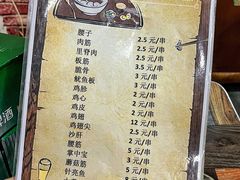 腰子 2.5 元/串
肉筋 2.5 元/串
里脊肉 2.5 元/串
板筋 2.5 元/串
脆骨 3.5 元/串
鱿鱼板 3 元/串
鸡胗 3 元/串
鸡心 3 元/串
鸡皮 2 元/串
鸡翅 12 元/串
鸡翅尖 2.5 元/串
沙肝 2 元/串
腰筋 5 元/串
掌中宝 5 元/串
蘑菇筋 5 元/串
针亮鱼
酒